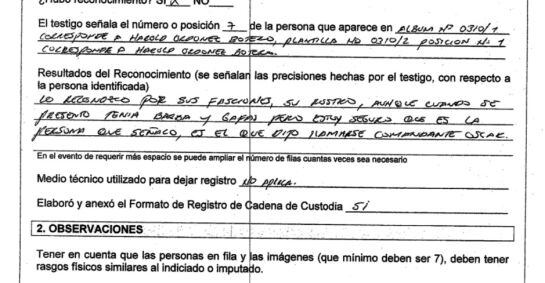 ¿Hubo reconocimiento? SI X NO
El testigo señala el número o posición 7 de la persona que aparece en ALBUM Nº 0310/1
CORRESPONDE A HAROLD ORDOÑEZ BOTERO, PLANTILLA NO 0310/2 POSICION Nº 1
CORRESPONDE A HAROLD ORDOÑEZ BOTERO.
Resultados del Reconocimiento (se señalan las precisiones hechas por el testigo, con respecto a
la persona identificada)
LO RECONOZCO POR SUS FACCIONES, SU ROSTRO, AUNQUE CUANDO SE
PRESENTO TENIA BARBA Y GAFAS PERO ESTOY SEGURO QUE ES LA
PERSONA QUE SEÑALO, ES EL QUE DIJO LLAMARSE COMANDANTE OSCAR.
En el evento de requerir más espacio se puede ampliar el número de filas cuantas veces sea necesario
Medio técnico utilizado para dejar registro NO APLICA.
Elaboró y anexó el Formato de Registro de Cadena de Custodia SI
2. OBSERVACIONES
Tener en cuenta que las personas en fila y las imágenes (que mínimo deben ser 7), deben tener
rasgos físicos similares al indiciado o imputado.